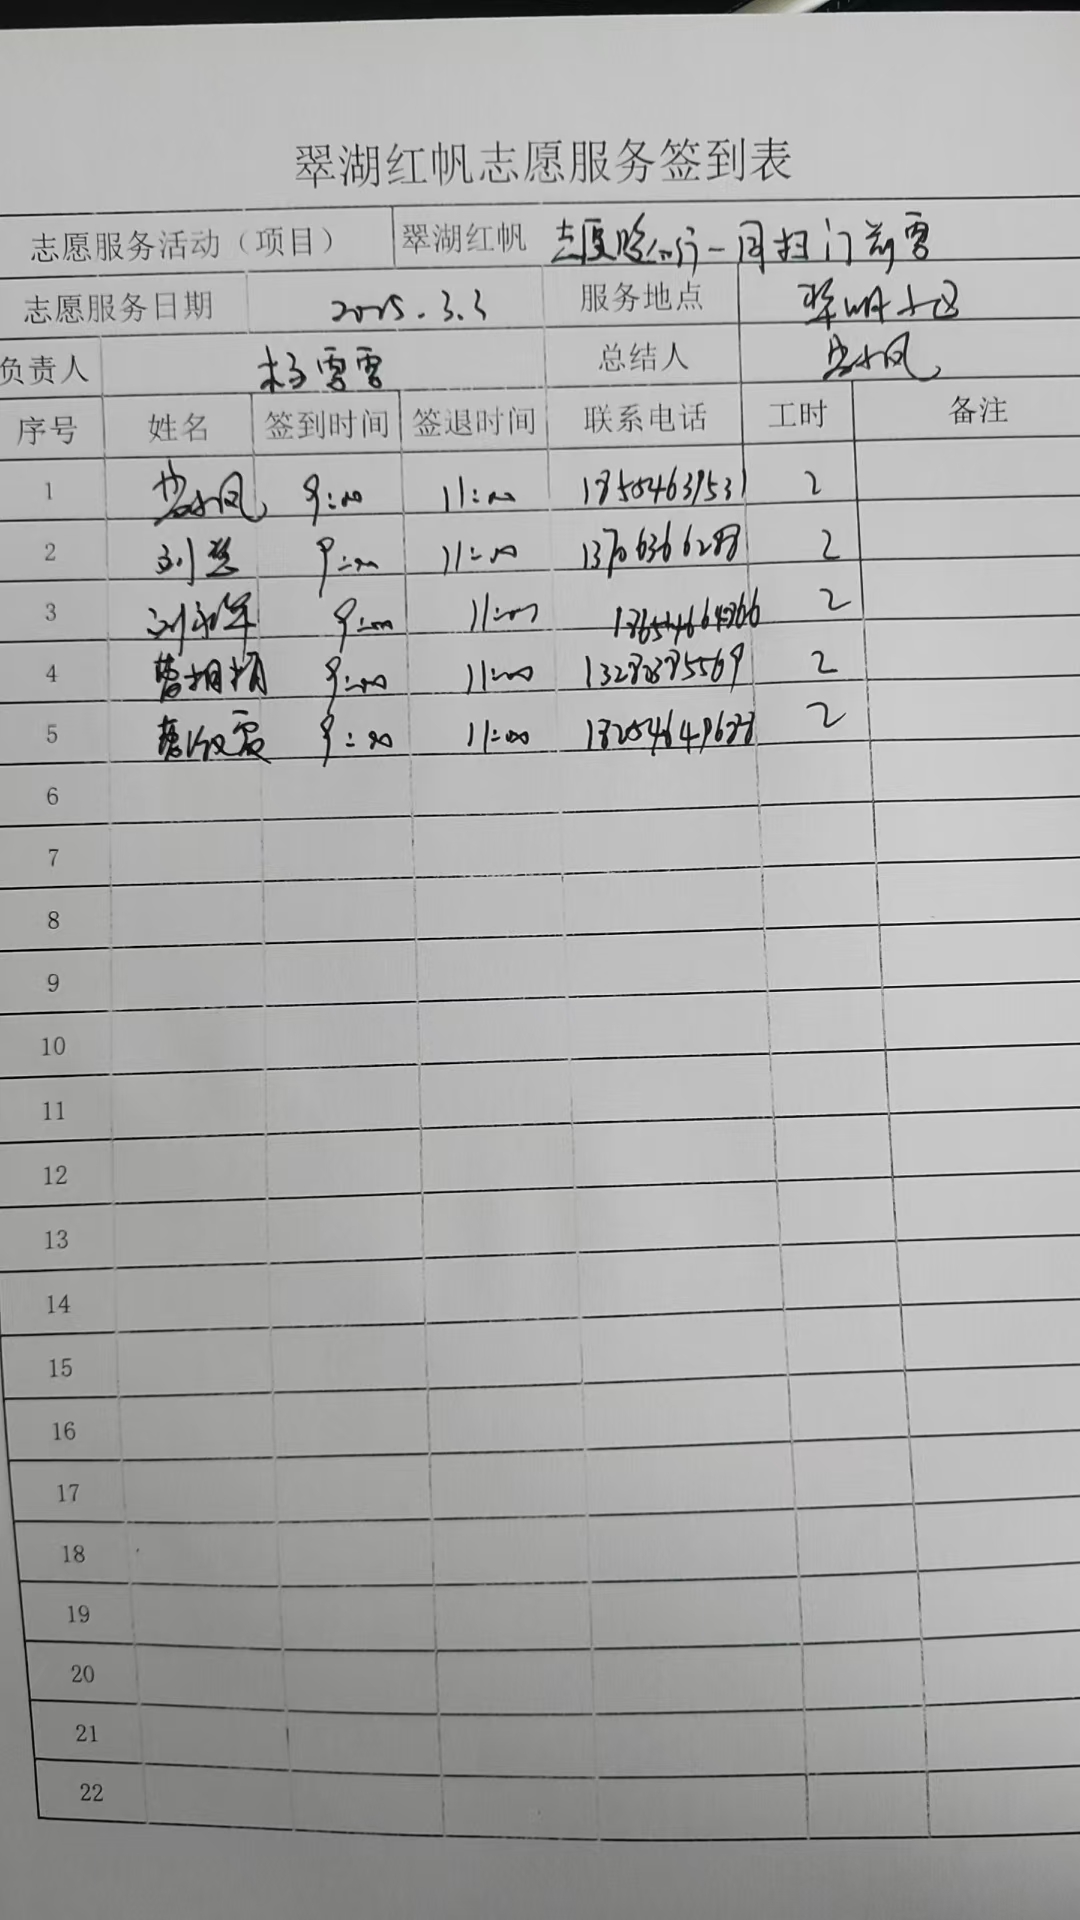 翠湖红帆志愿服务签到表
志愿服务活动（项目） 翠湖红帆 志愿 同行一同扫门前雪
志愿服务日期 2025.3.3 服务地点 翠湖小区
负责人 杨雪雪 总结人 小风
序号 姓名 签到时间 签退时间 联系电话 工时 备注
1 小风 9:00 11:00 18504639531 2
2 刘 9:00 11:00 13706366288 2
3 刘 9:00 11:00 2
4 曹 9:00 11:00 13282385569 2
5 9:00 11:00 18254649688 2
6
7
8
9
10
11
12
13
14
15
16
17
18
19
20
21
22